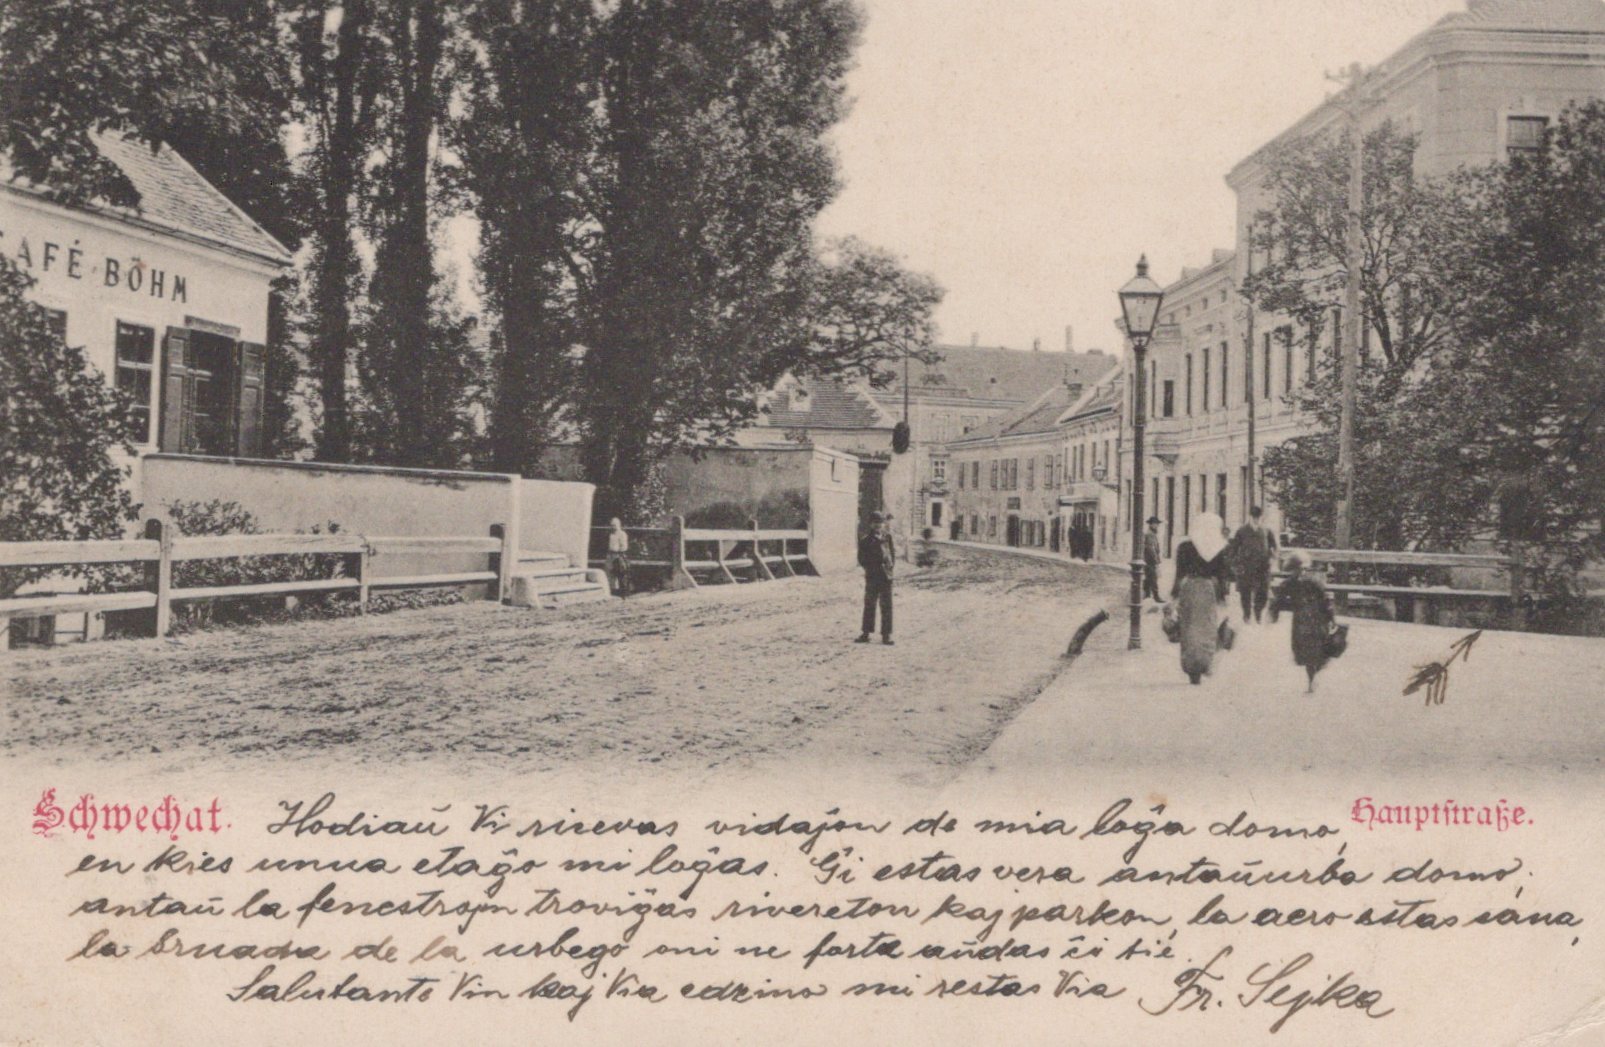 CAFÉ BÖHM
Schwechat. Hauptstraße.
Hodiaŭ Vi ricevas vidaĵon de mia loĝa domo,
en kies unua etaĝo mi loĝas. Ĝi estas vera antaŭurba domo;
antaŭ la fenestrojn troviĝas rivereton kaj parkon, la aero estas sana,
la bruado de la urbego oni ne forte aŭdas ĉi tie.
Salutante Vin kaj Via edzino mi restas Via Fr. Sejka